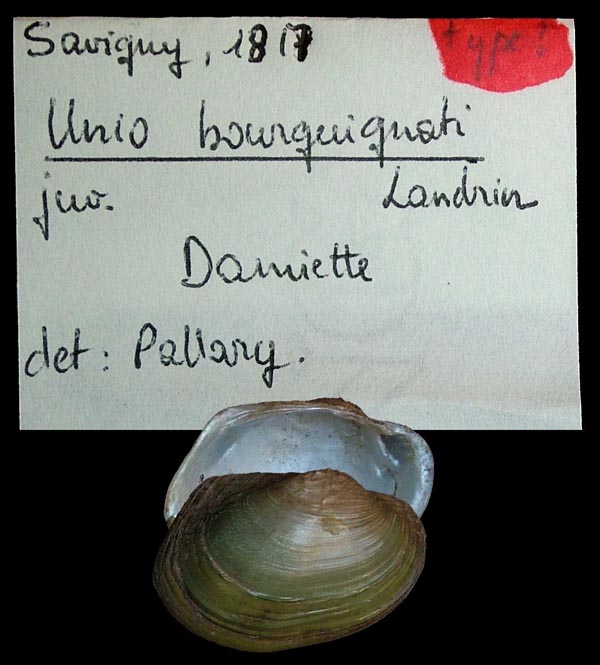 Savigny, 1817
type!
Unio bourguignati
juv. Landrin
Damiette
det: Pallary.